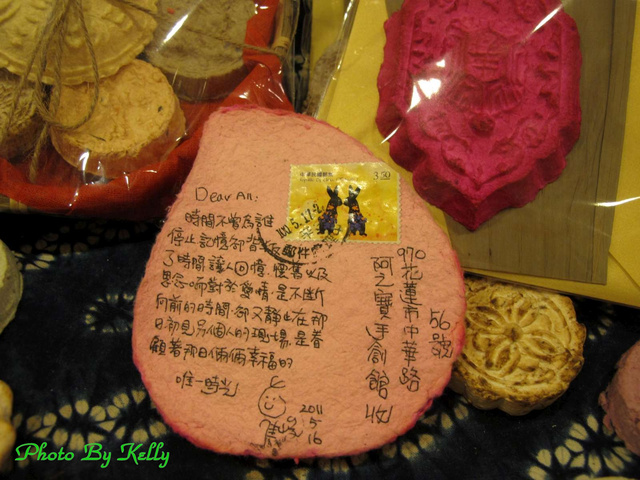 Dear An:
時間不曾為誰
停止記憶卻
了時間讓人回憶.懷舊以及
思念。而對於愛情是不斷
向前的時間.卻又靜止在那
日初見另個人的現場.是眷
顧著那日倆倆幸福的
唯一時光
2011
5
16
3.50
970花蓮市中華路
56號
阿之寶手創館 收
Photo By Kelly